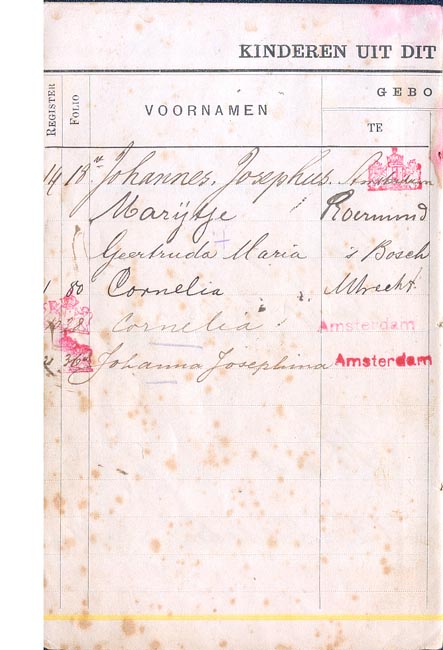 KINDEREN UIT DIT
REGISTER FOLIO VOORNAMEN GEBO
TE
14 13 Johannes, Josephus. Amsterdam
Marijtje Roermund
Geertruda Maria 's Bosch
1 80 Cornelia Utrecht
Cornelia Amsterdam
Johanna Josephina Amsterdam